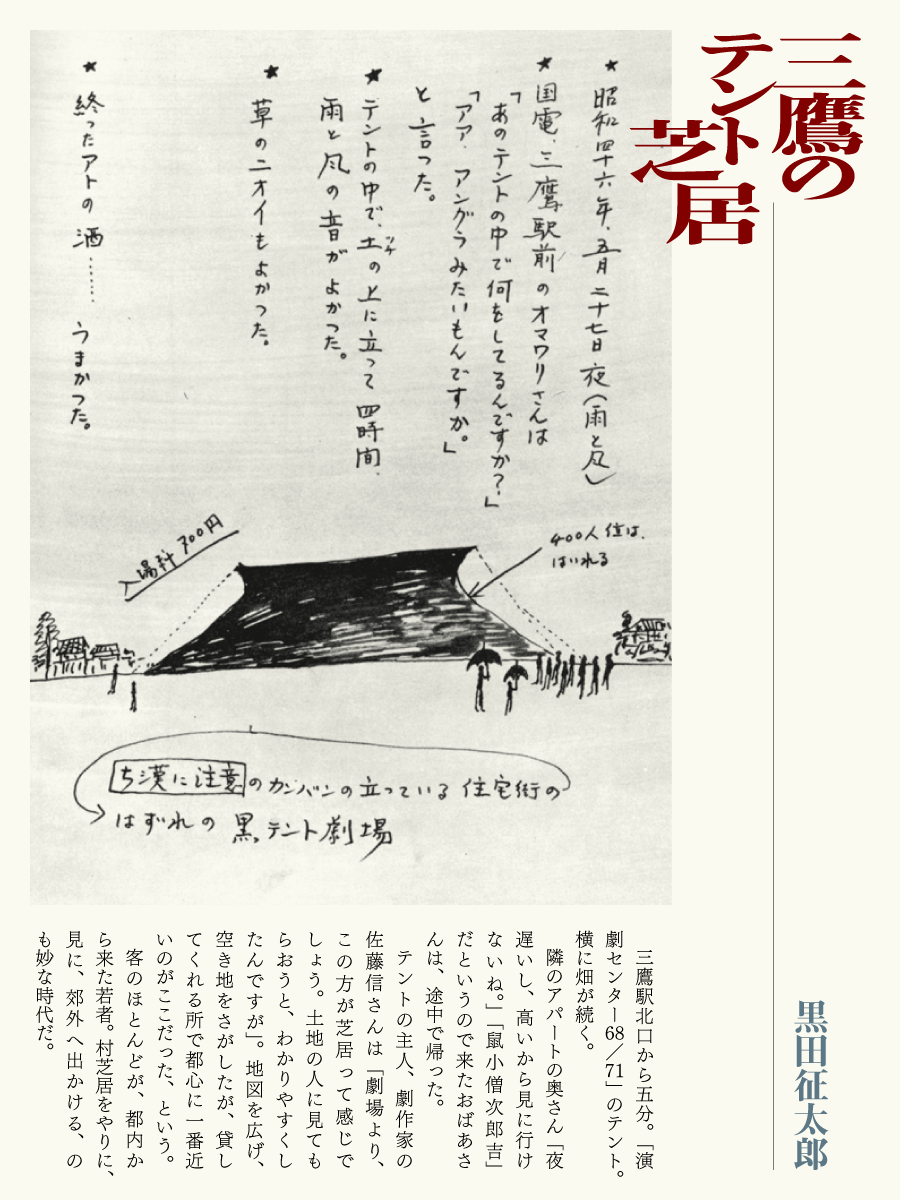 三鷹の
テント芝居
黒田征太郎
★昭和四十六年、五月二十七日夜(雨と风)
★国電、三鷹駅前のオマワリさんは
「あのテントの中で何をしてるんですか?」
「アア、アングラみたいもんですか。」
と言った。
★テントの中で、土の上に立って四時間、
ツチ
雨と风の音がよかった。
★草のニオイもよかった。
★終ったアトの酒……うまかった。
入場料700円
400人位は、
はいれる
ち漢に注意のカンバンの立っている住宅街の
はずれの黒テント劇場
三鷹駅北口から五分。「演
劇センター68/71」のテント。
横に畑が続く。
隣のアパートの奥さん「夜
遅いし、高いから見に行け
ないね。」「鼠小僧次郎吉」
だというので来たおばあさ
んは、途中で帰った。
テントの主人、劇作家の
佐藤信さんは「劇場より、
この方が芝居って感じで
しょう。土地の人に見ても
らおうと、わかりやすくし
たんですが」。地図を広げ、
空き地をさがしたが、貸し
てくれる所で都心に一番近
いのがここだった、という。
客のほとんどが、都内か
ら来た若者。村芝居をやりに、
見に、郊外へ出かける、の
も妙な時代だ。